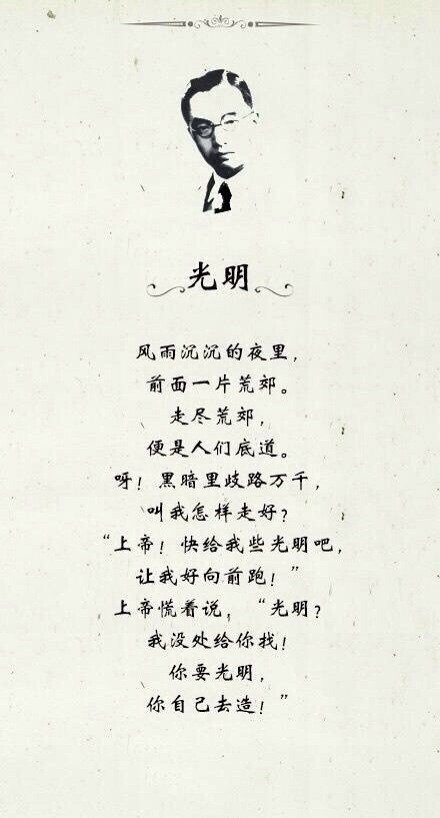 光明
风雨沉沉的夜里，
前面一片荒郊。
走尽荒郊，
便是人们底道。
呀！黑暗里歧路万千，
叫我怎样走好？
“上帝！快给我些光明吧，
让我好向前跑！”
上帝慌着说，“光明？
我没处给你找！
你要光明，
你自己去造！”